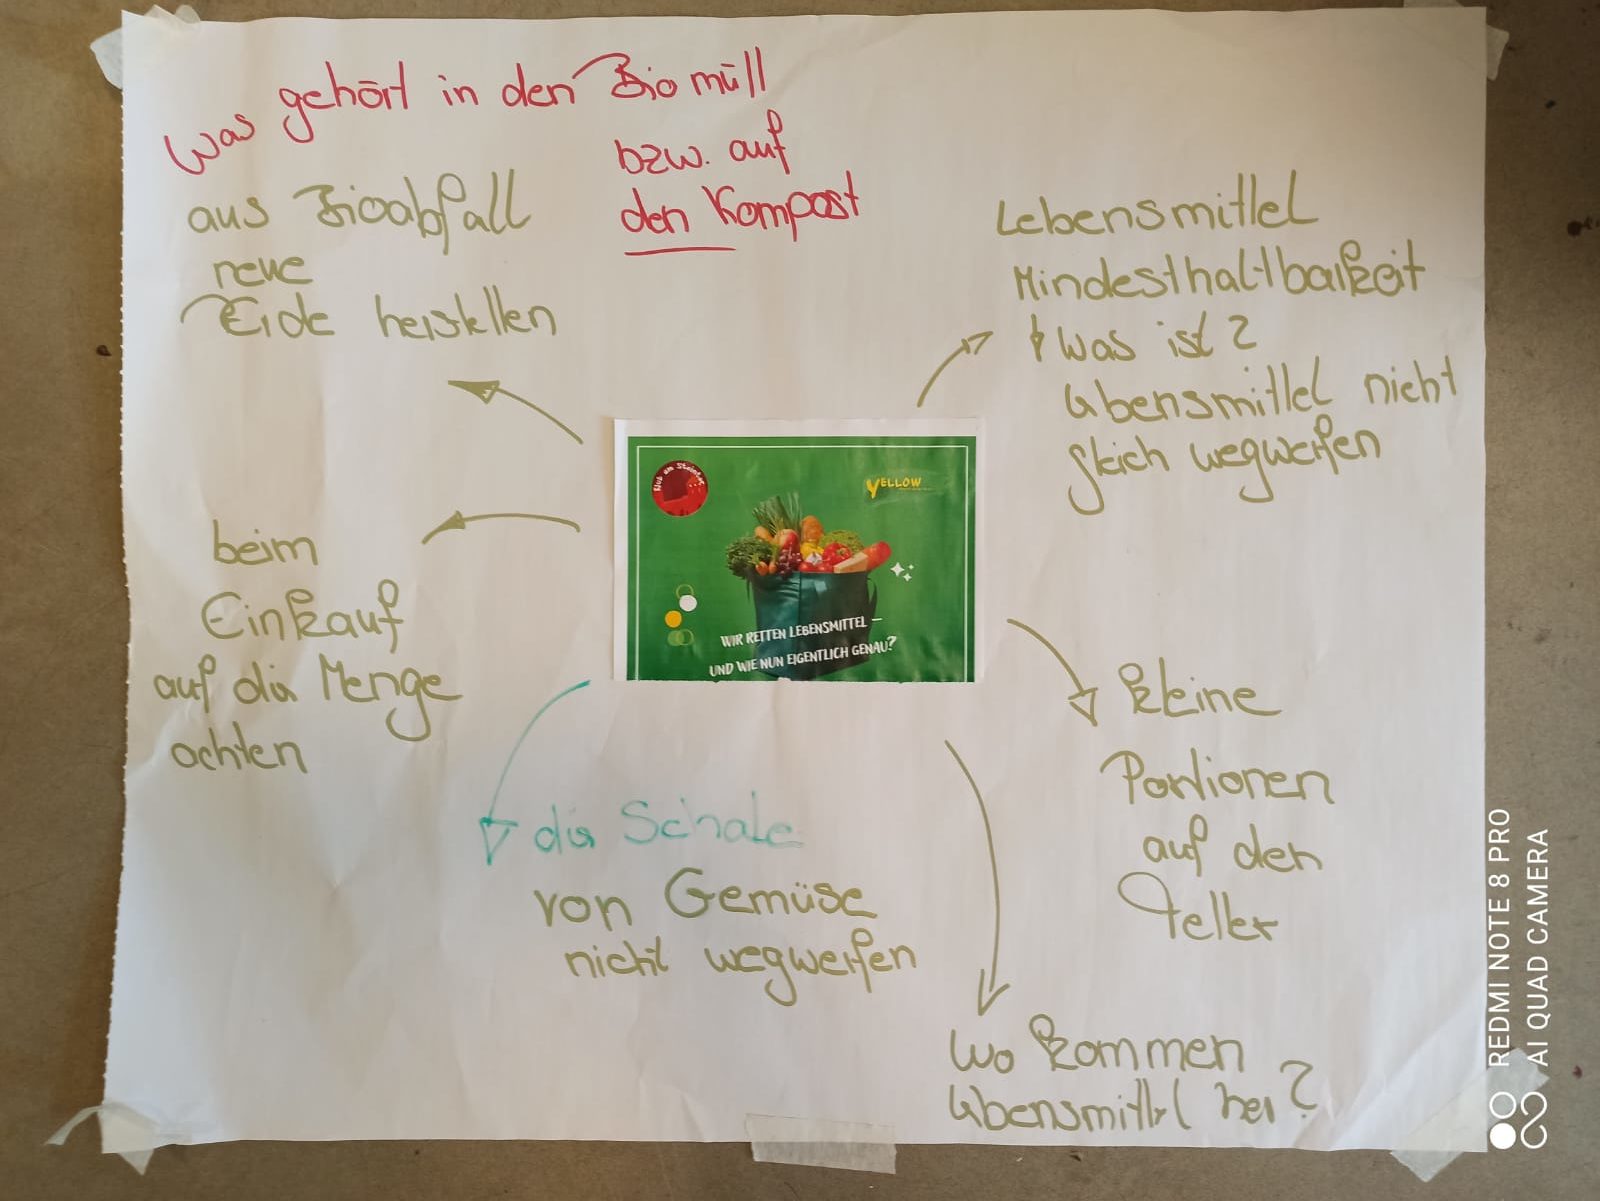 Was gehört in den Biomüll
bzw. auf
den Kompost
aus Bioabfall
neue
Erde herstellen
Lebensmittel
Mindesthaltbarkeit
Was ist?
Lebensmittel nicht
gleich wegwerfen
Klub am Steintor
YELLOW
WIR RETTEN LEBENSMITTEL –
UND WIE NUN EIGENTLICH GENAU?
beim
Einkauf
auf die Menge
achten
kleine
Portionen
auf den
Teller
die Schale
von Gemüse
nicht wegwerfen
Wo kommen
Lebensmittel her?
REDMI NOTE 8 PRO
AI QUAD CAMERA